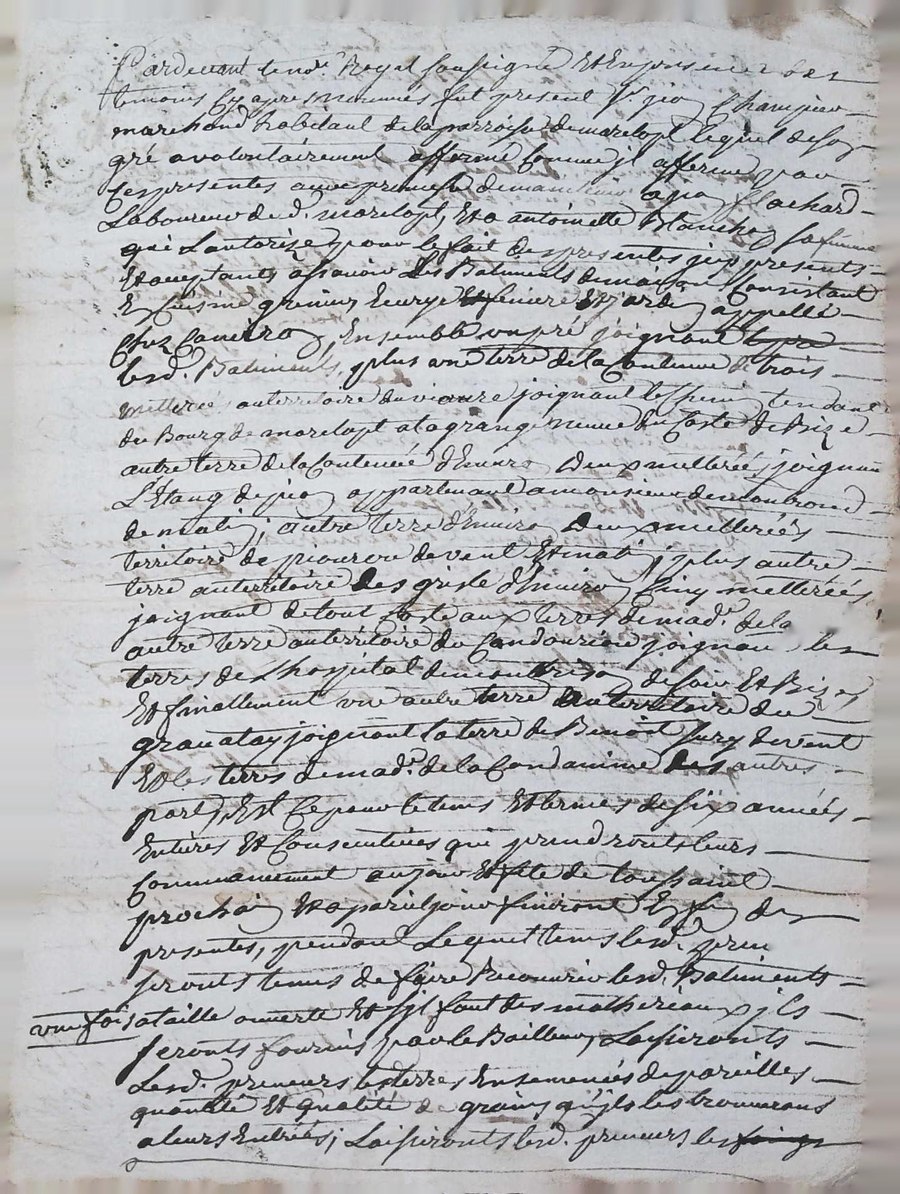 Pardevant le no.re Royal soussigné Et En presence des
temoins cy apres nommés fut present Sr Champier
marchand habitant de la parroisse de marclopt lequel de son
gré a volontairement affermé Comme jl afferme par
Ces presentes avec promesse de flachard
Laboureur de d. marclopt, Et a antoinette Blanche, sa femme
qui L'autorise, pour le fait des presentes jcy presents
Et acceptants àssavoir Les Batiments de maison Consistant
En Cuisine grenier Ecurye Et feniere Et jardin appellé
Chez , Ensemble un pré joignant
lesd. Batiments, plus une terre de la Contenue de trois
metterée au territoire du joignant le chemin tendant
du Bourg de marclopt a la grange neuve du Coste de Bize
autre terre de la Contenue d'Environ Deux metterées, joignant
L'Etang de appartenant a monsieur de
de matin ; autre terre d'Environ Deux metterées
territoire de de vent Et matin ; plus autre
terre au territoire Des d'Environ Cinq metterées
joignant de tout Coste aux terres de mad.e de la
autre terre au territoire du joignant les
terres de L'hospital de montbrison de soir Et Bize
Et finallement une autre terre Du territoire du
joignant la terre de Benoit Jury de vent
Et les terres de mad.e de la Condamine Des autres
parts, Est Ce pour le tems Et termes de Six années
Entieres Et Consecutives qui prendronts leurs
Commancement au jour Et fete de toussaint
prochain Et a pareil jour finiront En fin des
presentes, pendant Lequel tems lesd. pren
seronts tenus de faire Recouvrir lesd. Batiments
une fois a taille ouverte Et s'jl faut des mathereaux jls
seronts fournis par le Bailleur, Laisseronts
Lesd. preneurs les terres Ensemencés de pareilles
quantité Et qualité de grains qu'jls les trouverons
a leurs Entrées, ; Laisseronts lesd. preneurs les foings